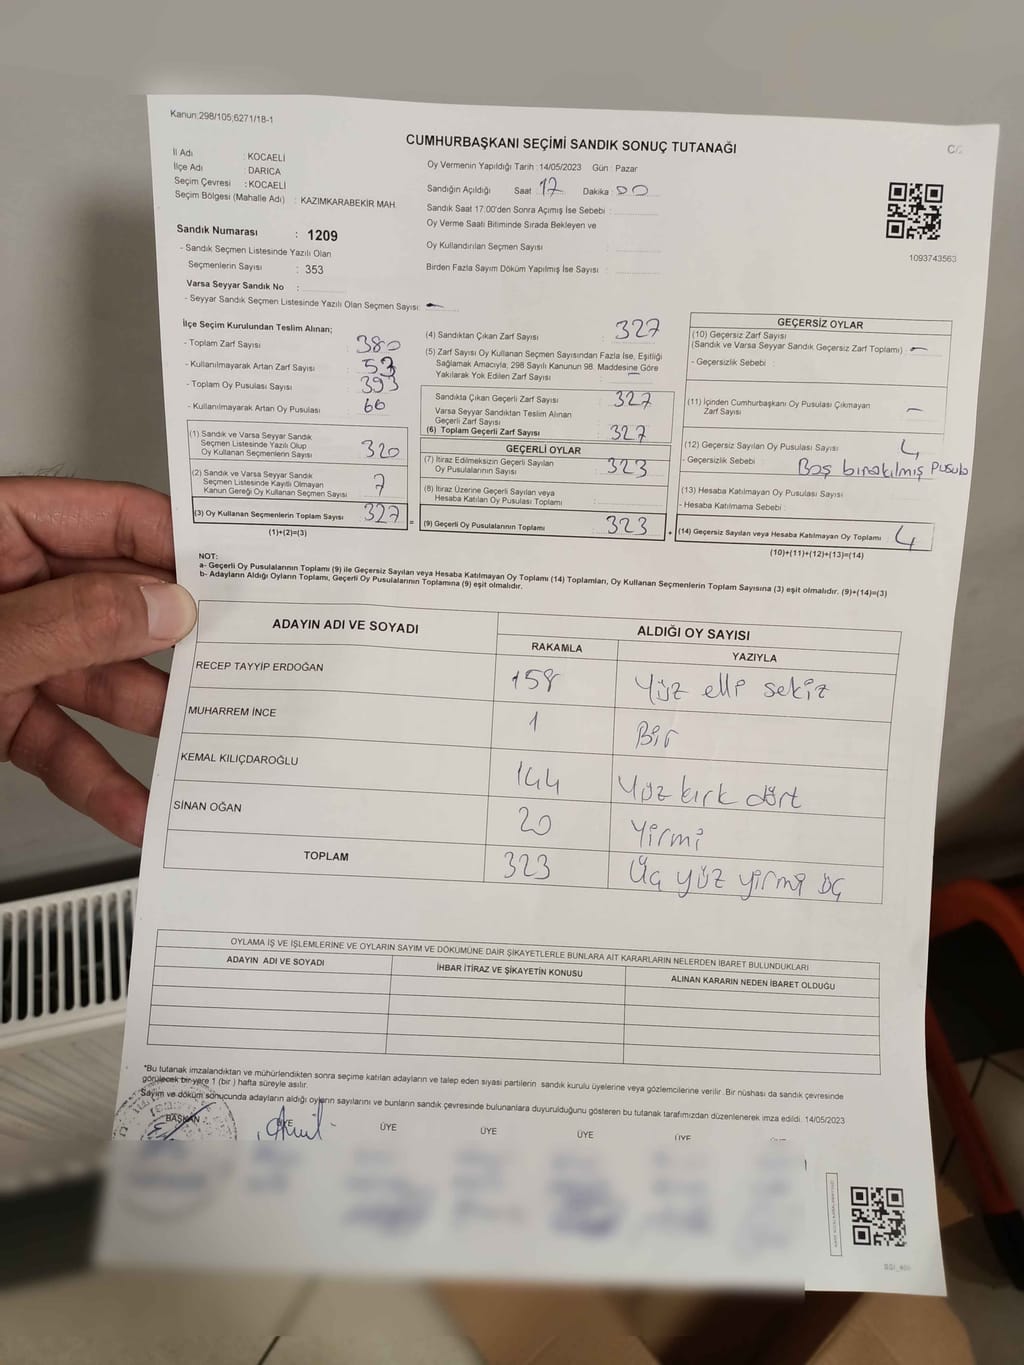 Kanun;298/105;6271/18-1
CUMHURBAŞKANI SEÇİMİ SANDIK SONUÇ TUTANAĞI
İl Adı : KOCAELİ
İlçe Adı : DARICA
Seçim Çevresi : KOCAELİ
Seçim Bölgesi (Mahalle Adı) : KAZIMKARABEKİR MAH.
Sandık Numarası : 1209
- Sandık Seçmen Listesinde Yazılı Olan
Seçmenlerin Sayısı : 353
Varsa Seyyar Sandık No :
- Seyyar Sandık Seçmen Listesinde Yazılı Olan Seçmen Sayısı: -
Oy Vermenin Yapıldığı Tarih : 14/05/2023 Gün : Pazar
Sandığın Açıldığı Saat : 17 Dakika : 00
Sandık Saat 17:00'den Sonra Açımış İse Sebebi :
Oy Verme Saati Bitiminde Sırada Bekleyen ve
Oy Kullandırılan Seçmen Sayısı :
Birden Fazla Sayım Döküm Yapılmış İse Sayısı :
1093743563
İlçe Seçim Kurulundan Teslim Alınan;
- Toplam Zarf Sayısı : 380
- Kullanılmayarak Artan Zarf Sayısı : 53
- Toplam Oy Pusulası Sayısı : 393
- Kullanılmayarak Artan Oy Pusulası : 66
(1) Sandık ve Varsa Seyyar Sandık
Seçmen Listesinde Yazılı Olup
Oy Kullanan Seçmenlerin Sayısı : 320
(2) Sandık ve Varsa Seyyar Sandık
Seçmen Listesinde Kayıtlı Olmayan
Kanun Gereği Oy Kullanan Seçmen Sayısı : 7
(3) Oy Kullanan Seçmenlerin Toplam Sayısı : 327
(1)+(2)=(3)
(4) Sandıktan Çıkan Zarf Sayısı : 327
(5) Zarf Sayısı Oy Kullanan Seçmen Sayısından Fazla İse, Eşitliği
Sağlamak Amacıyla; 298 Sayılı Kanunun 98. Maddesine Göre
Yakılarak Yok Edilen Zarf Sayısı : -
Sandıkta Çıkan Geçerli Zarf Sayısı : 327
Varsa Seyyar Sandıktan Teslim Alınan
Geçerli Zarf Sayısı :
(6) Toplam Geçerli Zarf Sayısı : 327
GEÇERLİ OYLAR
(7) İtiraz Edilmeksizin Geçerli Sayılan
Oy Pusulalarının Sayısı : 323
(8) İtiraz Üzerine Geçerli Sayılan veya
Hesaba Katılan Oy Pusulası Toplamı :
(9) Geçerli Oy Pusulalarının Toplamı : 323
GEÇERSİZ OYLAR
(10) Geçersiz Zarf Sayısı
(Sandık ve Varsa Seyyar Sandık Geçersiz Zarf Toplamı) : -
- Geçersizlik Sebebi :
(11) İçinden Cumhurbaşkanı Oy Pusulası Çıkmayan
Zarf Sayısı : -
(12) Geçersiz Sayılan Oy Pusulası Sayısı : 4
- Geçersizlik Sebebi : Boş bırakılmış Pusula
(13) Hesaba Katılmayan Oy Pusulası Sayısı
- Hesaba Katılmama Sebebi :
(14) Geçersiz Sayılan veya Hesaba Katılmayan Oy Toplamı : 4
(10)+(11)+(12)+(13)=(14)
NOT:
a- Geçerli Oy Pusulalarının Toplamı (9) ile Geçersiz Sayılan veya Hesaba Katılmayan Oy Toplamı (14) Toplamları, Oy Kullanan Seçmenlerin Toplam Sayısına (3) eşit olmalıdır. (9)+(14)=(3)
b- Adayların Aldığı Oyların Toplamı, Geçerli Oy Pusulalarının Toplamına (9) eşit olmalıdır.
ADAYIN ADI VE SOYADI ALDIĞI OY SAYISI
RAKAMLA YAZIYLA
RECEP TAYYİP ERDOĞAN 158 Yüz elli sekiz
MUHARREM İNCE 1 Bir
KEMAL KILIÇDAROĞLU 144 Yüz kırk dört
SİNAN OĞAN 20 Yirmi
TOPLAM 323 Üç yüz yirmi üç
OYLAMA İŞ VE İŞLEMLERİNE VE OYLARIN SAYIM VE DÖKÜMÜNE DAİR ŞİKAYETLERLE BUNLARA AİT KARARLARIN NELERDEN İBARET BULUNDUKLARI
ADAYIN ADI VE SOYADI İHBAR İTİRAZ VE ŞİKAYETİN KONUSU ALINAN KARARIN NEDEN İBARET OLDUĞU
*Bu tutanak imzalandıktan ve mühürlendikten sonra seçime katılan adayların ve talep eden siyasi partilerin sandık kurulu üyelerine veya gözlemcilerine verilir. Bir nüshası da sandık çevresinde
görülecek bir yere 1 (bir ) hafta süreyle asılır.
Sayım ve döküm sonucunda adayların aldığı oyların sayılarını ve bunların sandık çevresinde bulunanlara duyurulduğunu gösteren bu tutanak tarafımızdan düzenlenerek imza edildi. 14/05/2023
BAŞKAN ÜYE ÜYE ÜYE ÜYE ÜYE